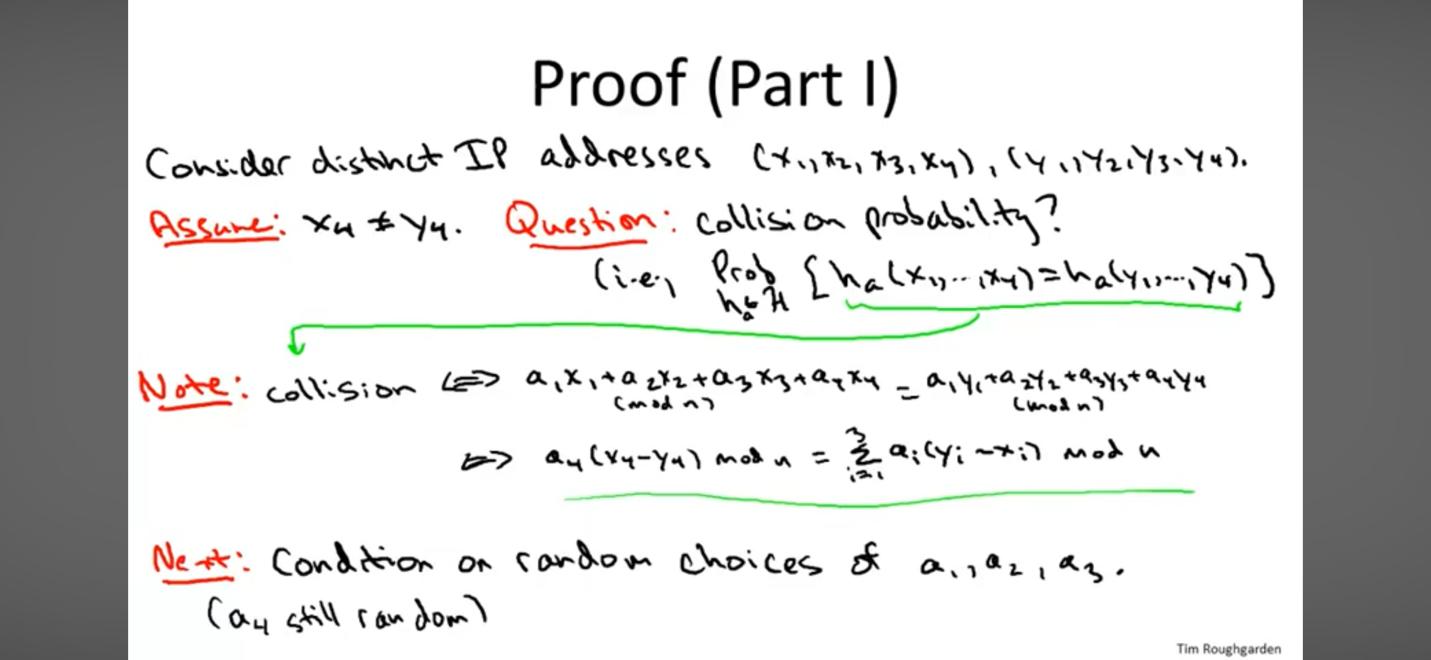 Proof (Part I)
Consider distinct IP addresses (x₁, x₂, x₃, x₄), (y₁, y₂, y₃, y₄).
Assume: x₄ ≠ y₄. Question: collision probability?
(i.e., Prob_{hₐ∈H} [hₐ(x₁,...,x₄) = hₐ(y₁,...,y₄)]
Note: collision ⟺ a₁x₁+a₂x₂+a₃x₃+a₄x₄ = a₁y₁+a₂y₂+a₃y₃+a₄y₄
(mod n) (mod n)
⟺ a₄(x₄-y₄) mod n = ∑_{i=1}^{3} aᵢ(yᵢ-xᵢ) mod n
Next: Condition on random choices of a₁, a₂, a₃.
(a₄ still random)
Tim Roughgarden